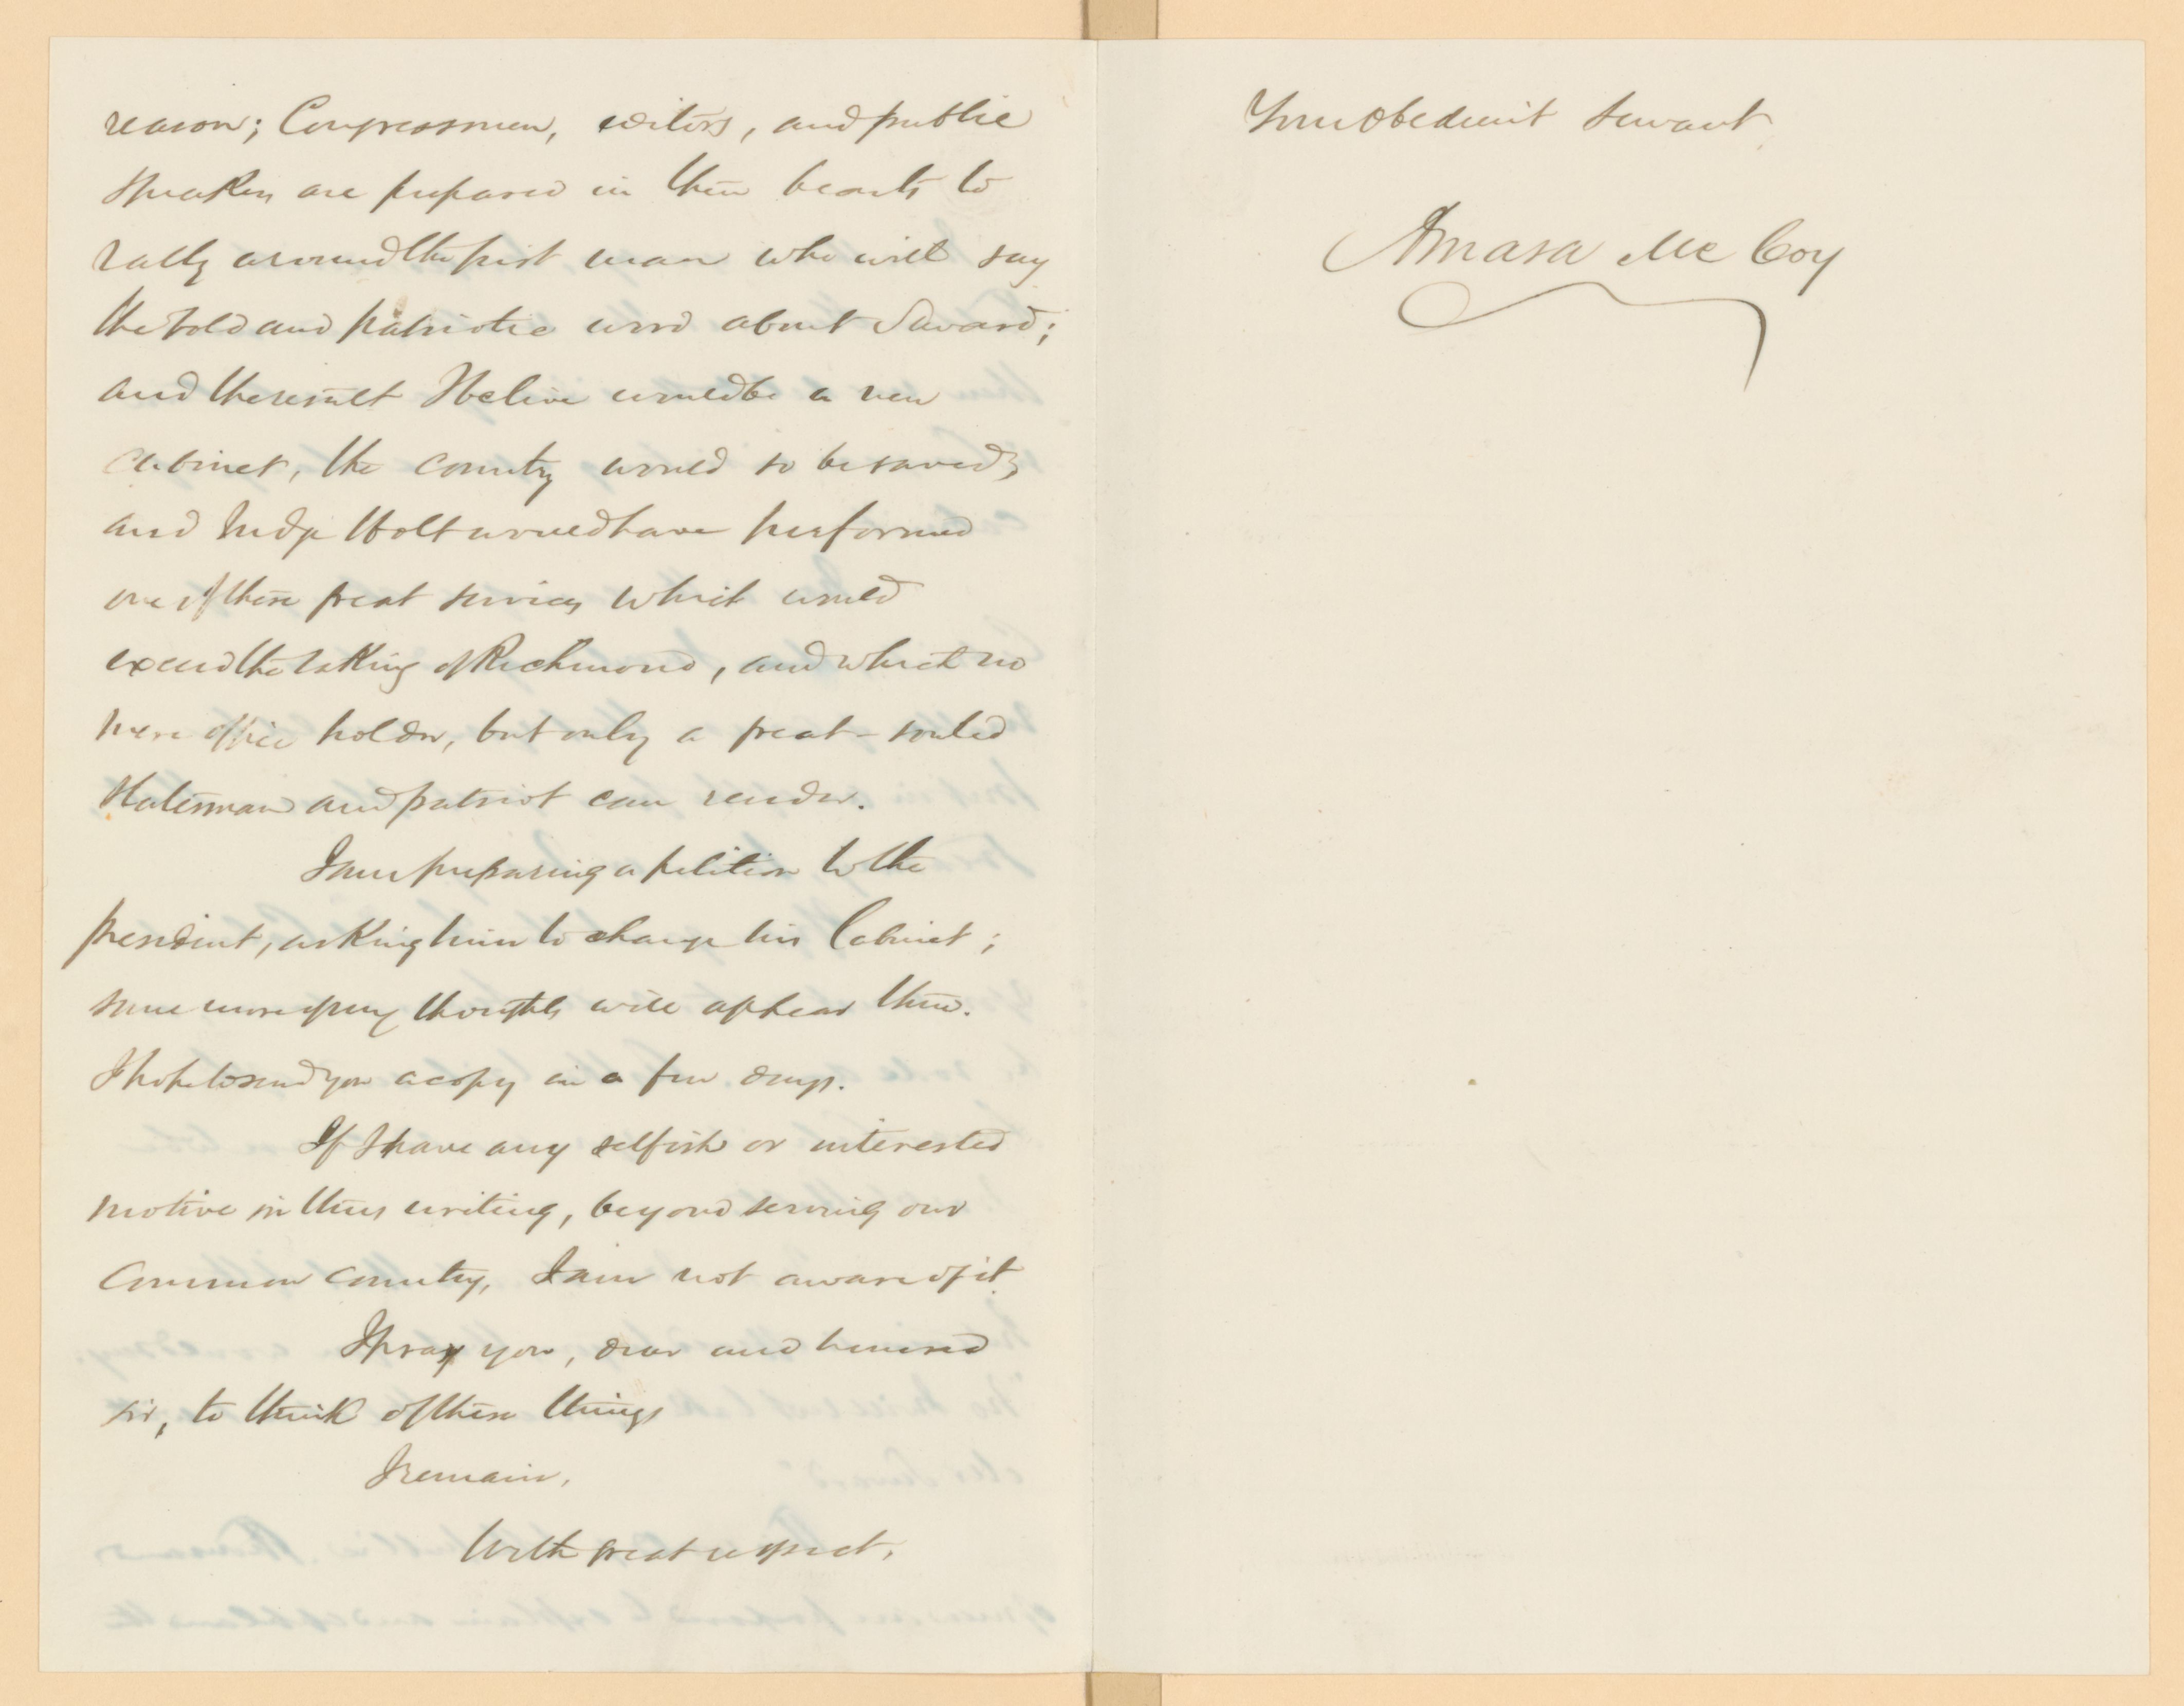 reason; Congressmen, editors, and public
speakers are prepared in their hearts to
rally around the first man who will say
the bold and patriotic word about Seward;
and the result I believe would be a new
cabinet, the country would so be saved,
and Judge Holt would have performed
one of those great services which would
exceed the taking of Richmond, and which no
mere office holder, but only a great-souled
Statesman and patriot can render.
I am preparing a petition to the
president, asking him to change his Cabinet;
some more of my thoughts will appear there.
I hope to send you a copy in a few days.
If I have any selfish or interested
motive in thus writing, beyond serving our
common country, I am not aware of it.
I pray you, dear and honored
sir, to think of these things
I remain,
With great respect,
Your Obedient Servant,
Amasa McCoy